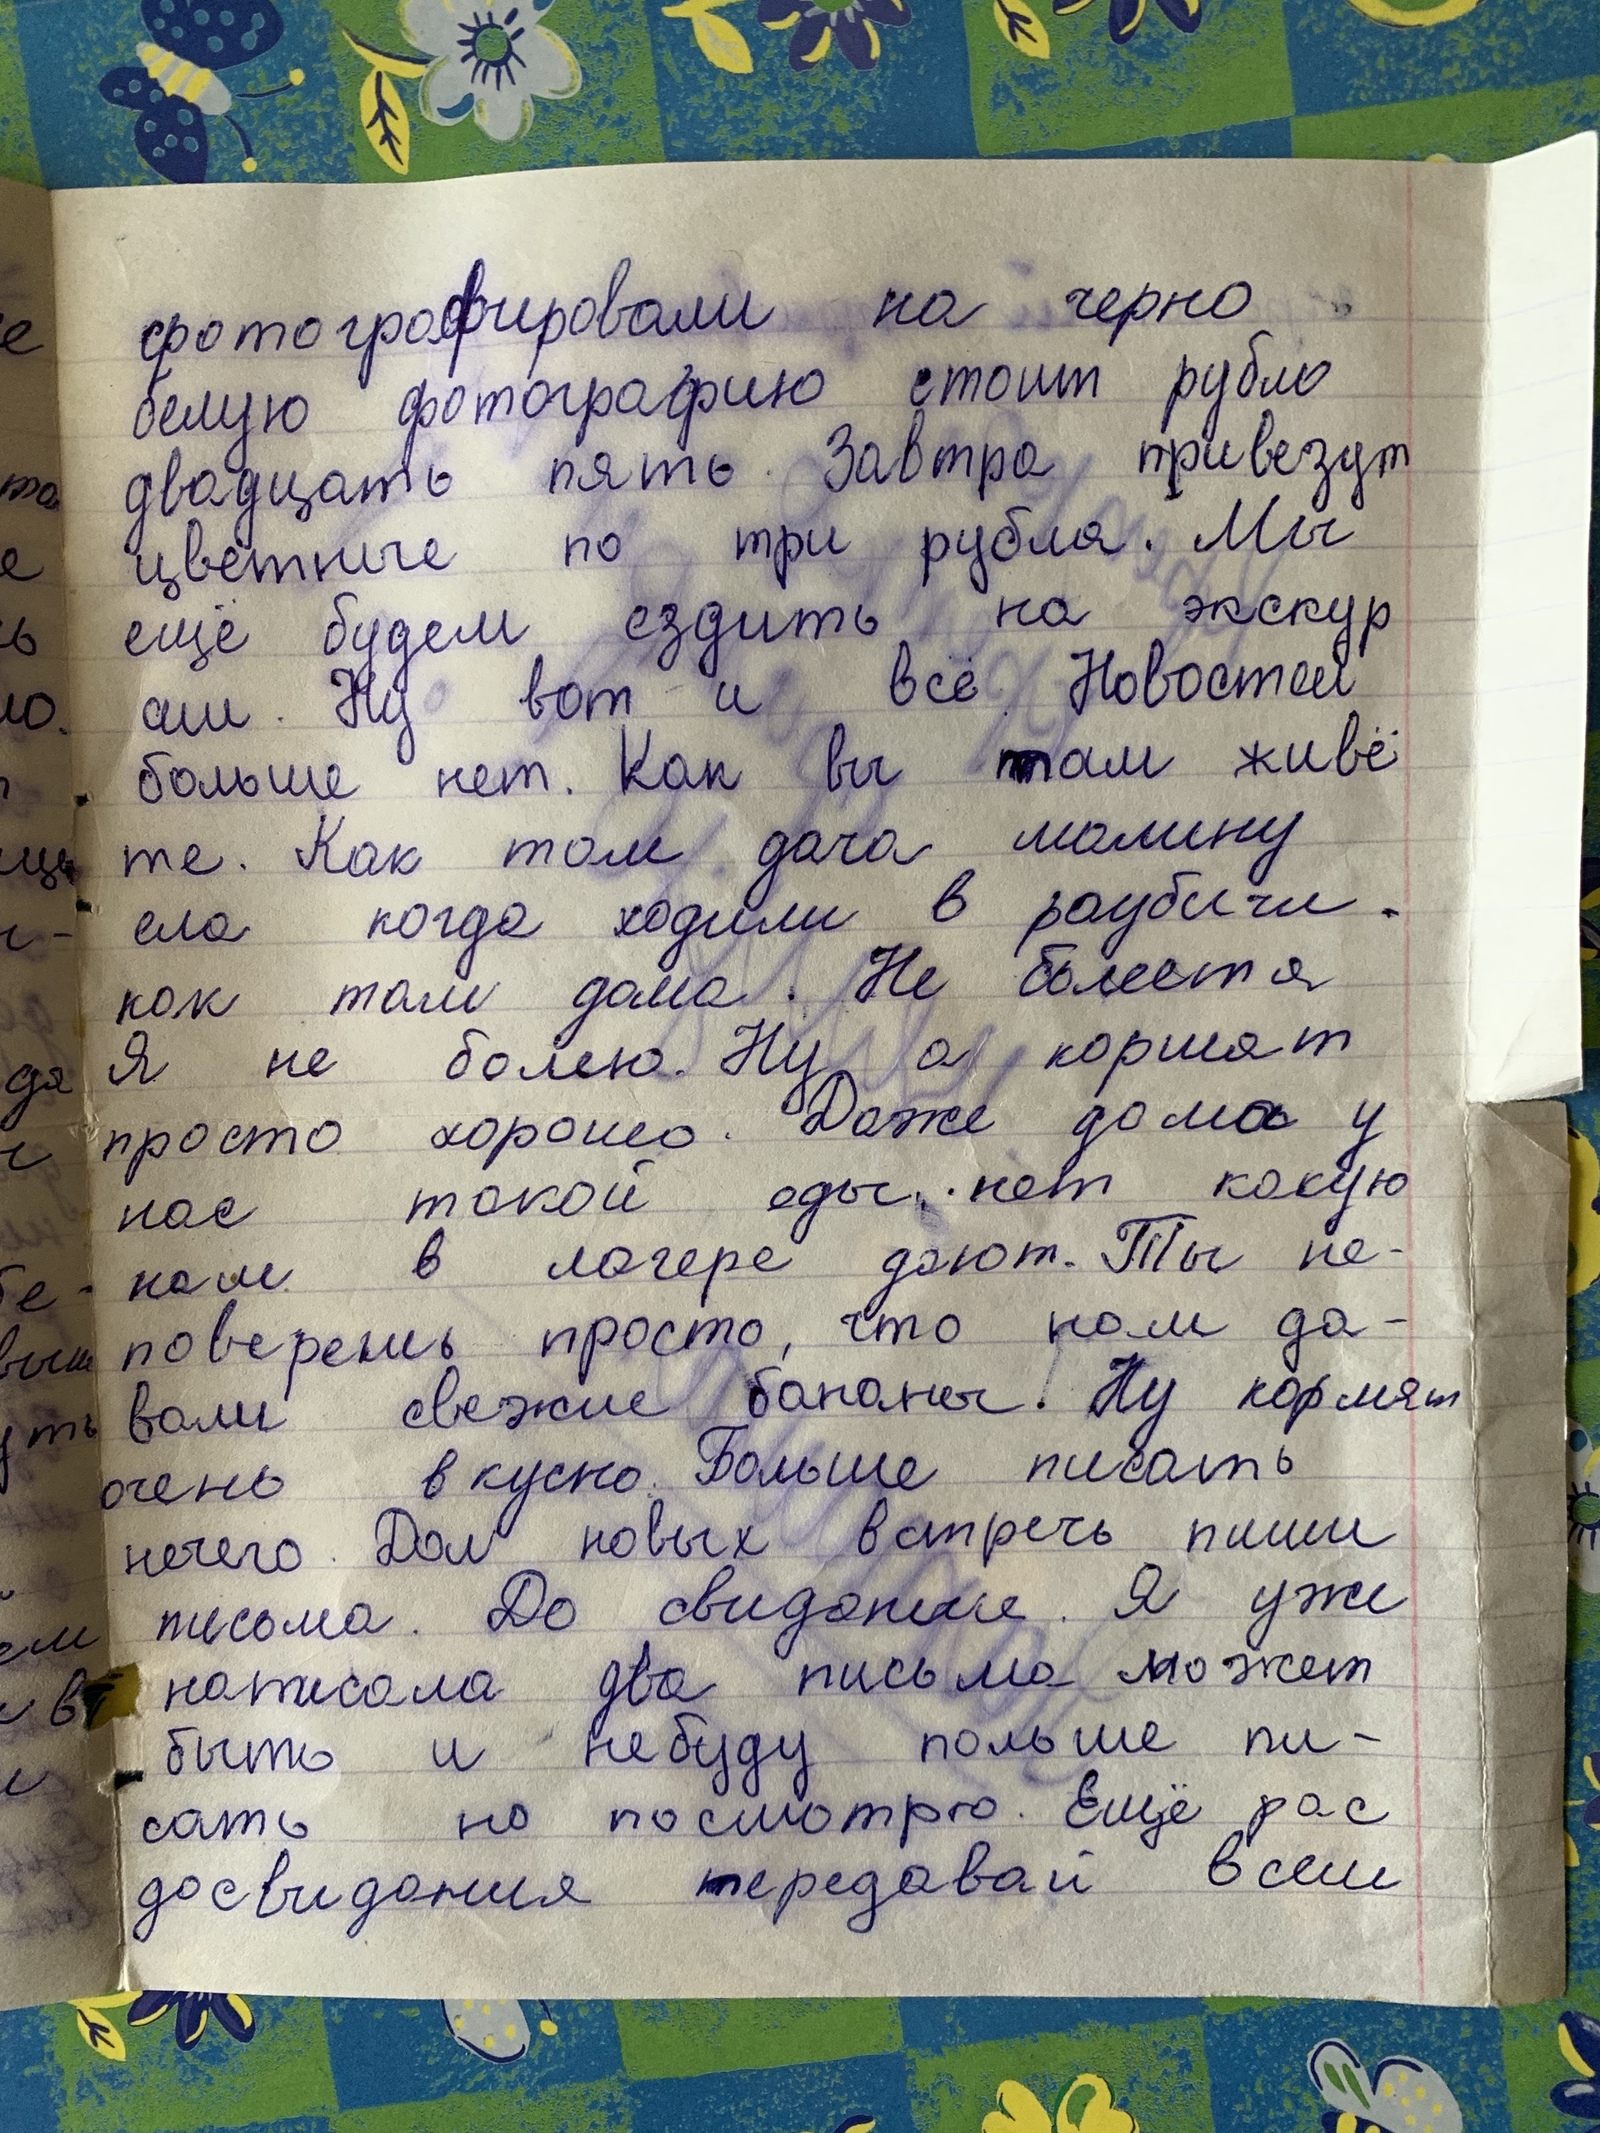 фотографировали на черно
белую фотографию стоит рубль
двадцать пять. Завтра привезут
цветные по три рубля. Мы
ещё будем ездить на экскур
сии. Ну вот и всё. Новостей
больше нет. Как вы там живё
те. Как там дача малину
ела когда ходили в раубичи.
как там дома. Не болеетя
Я не болею. Ну а кормят
просто хорошо. Даже дома у
нас такой еды нет какую
нам в лагере дают. Ты не-
поверешь просто, что нам да-
вали свежие бананы. Ну кормят
очень вкусно. Больше писать
нечего. Дол новых встречь пиши
письма. До свидание. Я уже
написала два письма может
быть и небуду польше пи-
сать но посмотрю. Ещё рас
досвидания передавай всем